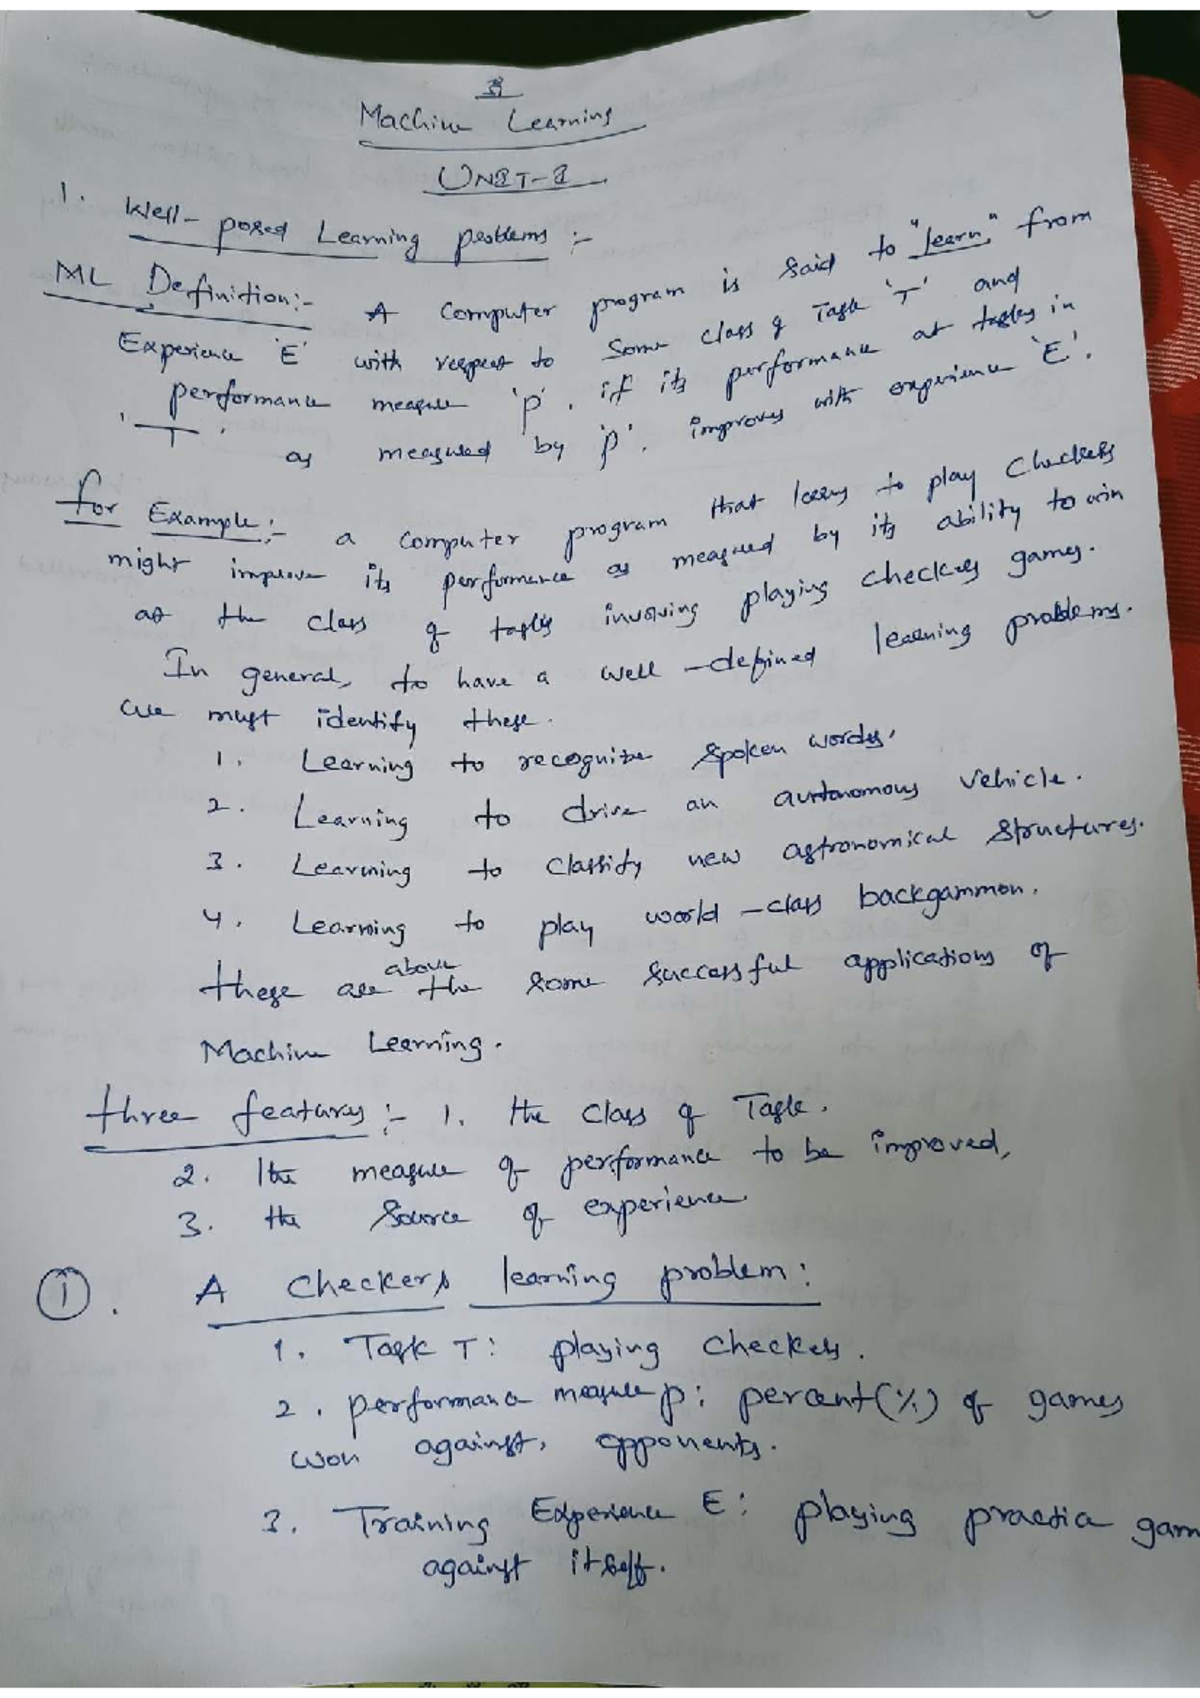 ॐ
Machine Learning
UNIT-I
1. Well-posed Learning problems :-
ML Definition:- A Computer program is said to "learn" from
Experience 'E' with respect to Some class of Task 'T' and
performance measure 'p', if its performance at tasks in
'T' as measured by 'p'. improves with experience 'E'.
For Example:- a computer program that learns to play checkers
might improve its performance as measured by its ability to win
at the class of tasks involving playing checkers games.
In general, to have a well-defined learning problems.
we must identify these.
1. Learning to recognize spoken words.
2. Learning to drive an autonomous vehicle.
3. Learning to classify new astronomical structures.
4. Learning to play world-class backgammon.
these are the above some successful applications of
Machine Learning.
three features :- 1. the class of Task.
2. the measure of performance to be improved,
3. the source of experience.
①. A checkers learning problem:
1. Task T: playing checkers.
2. performance measure p: percent(%) of games
won against, opponents.
3. Training Experience E: playing practice gam
against itself.